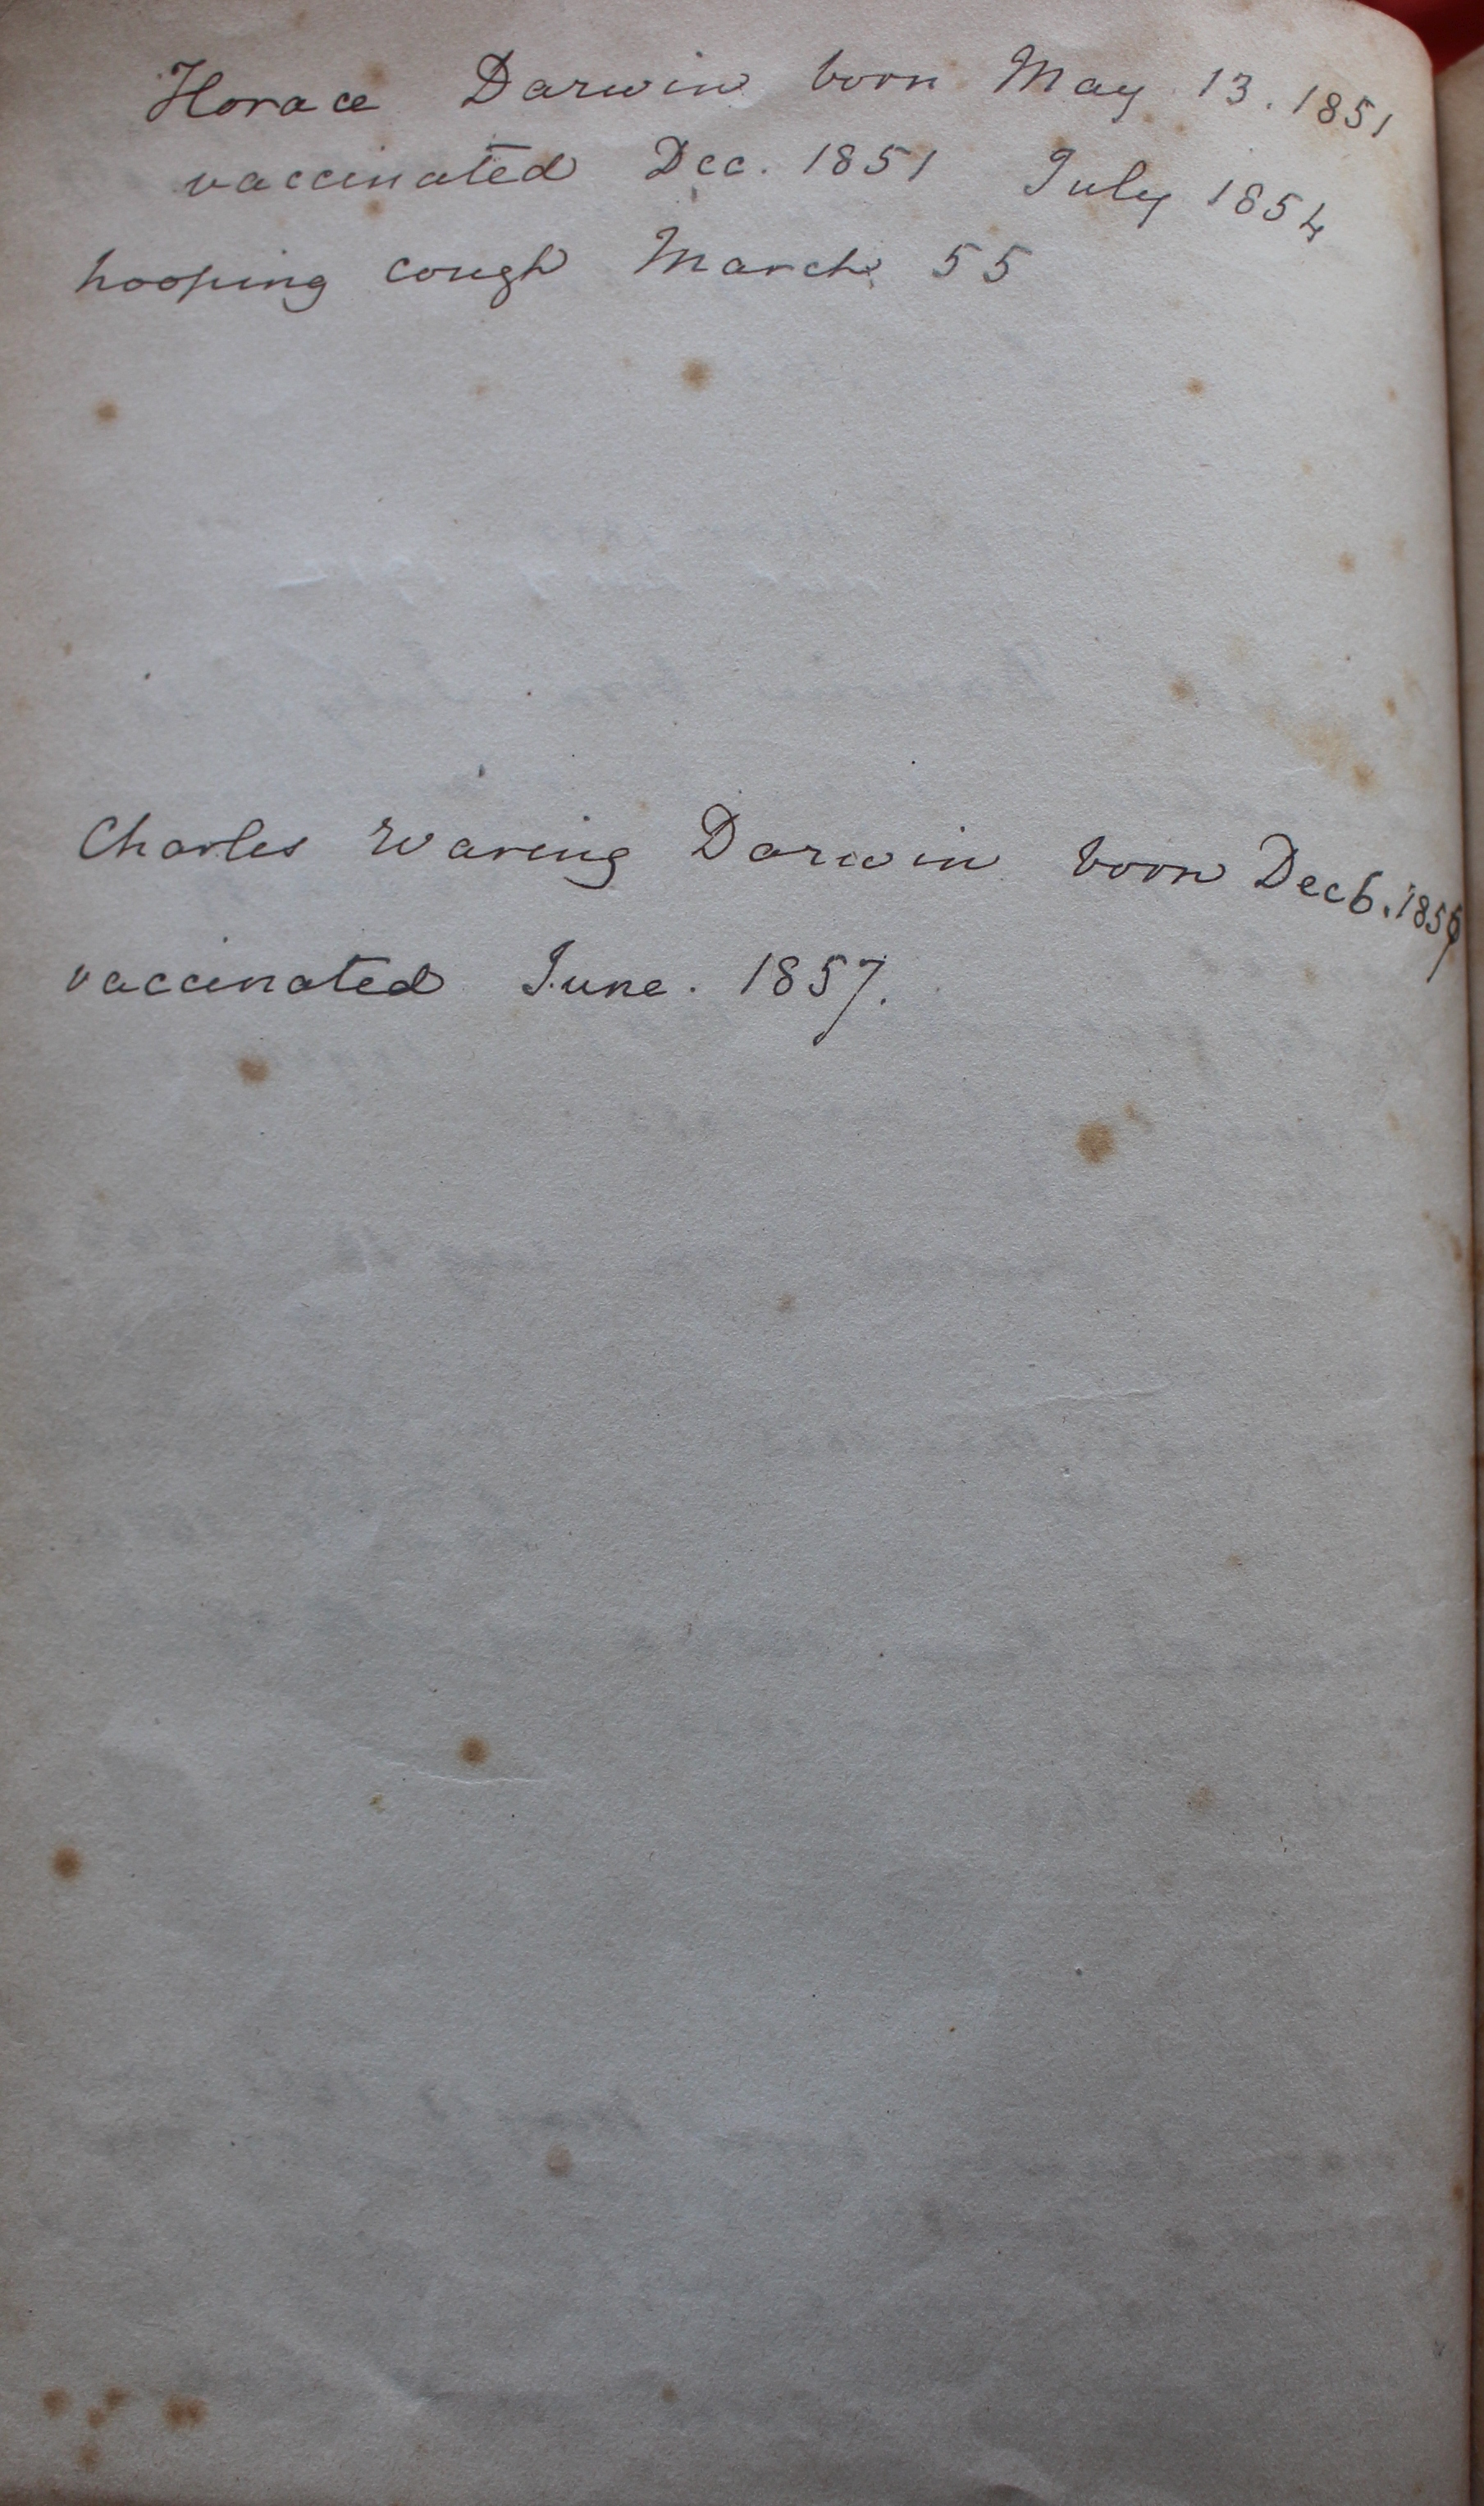 Horace Darwin born May 13. 1851
vaccinated Dec. 1851 July 1854
hooping cough March 55
Charles Waring Darwin born Dec 6. 1856
vaccinated June. 1857.